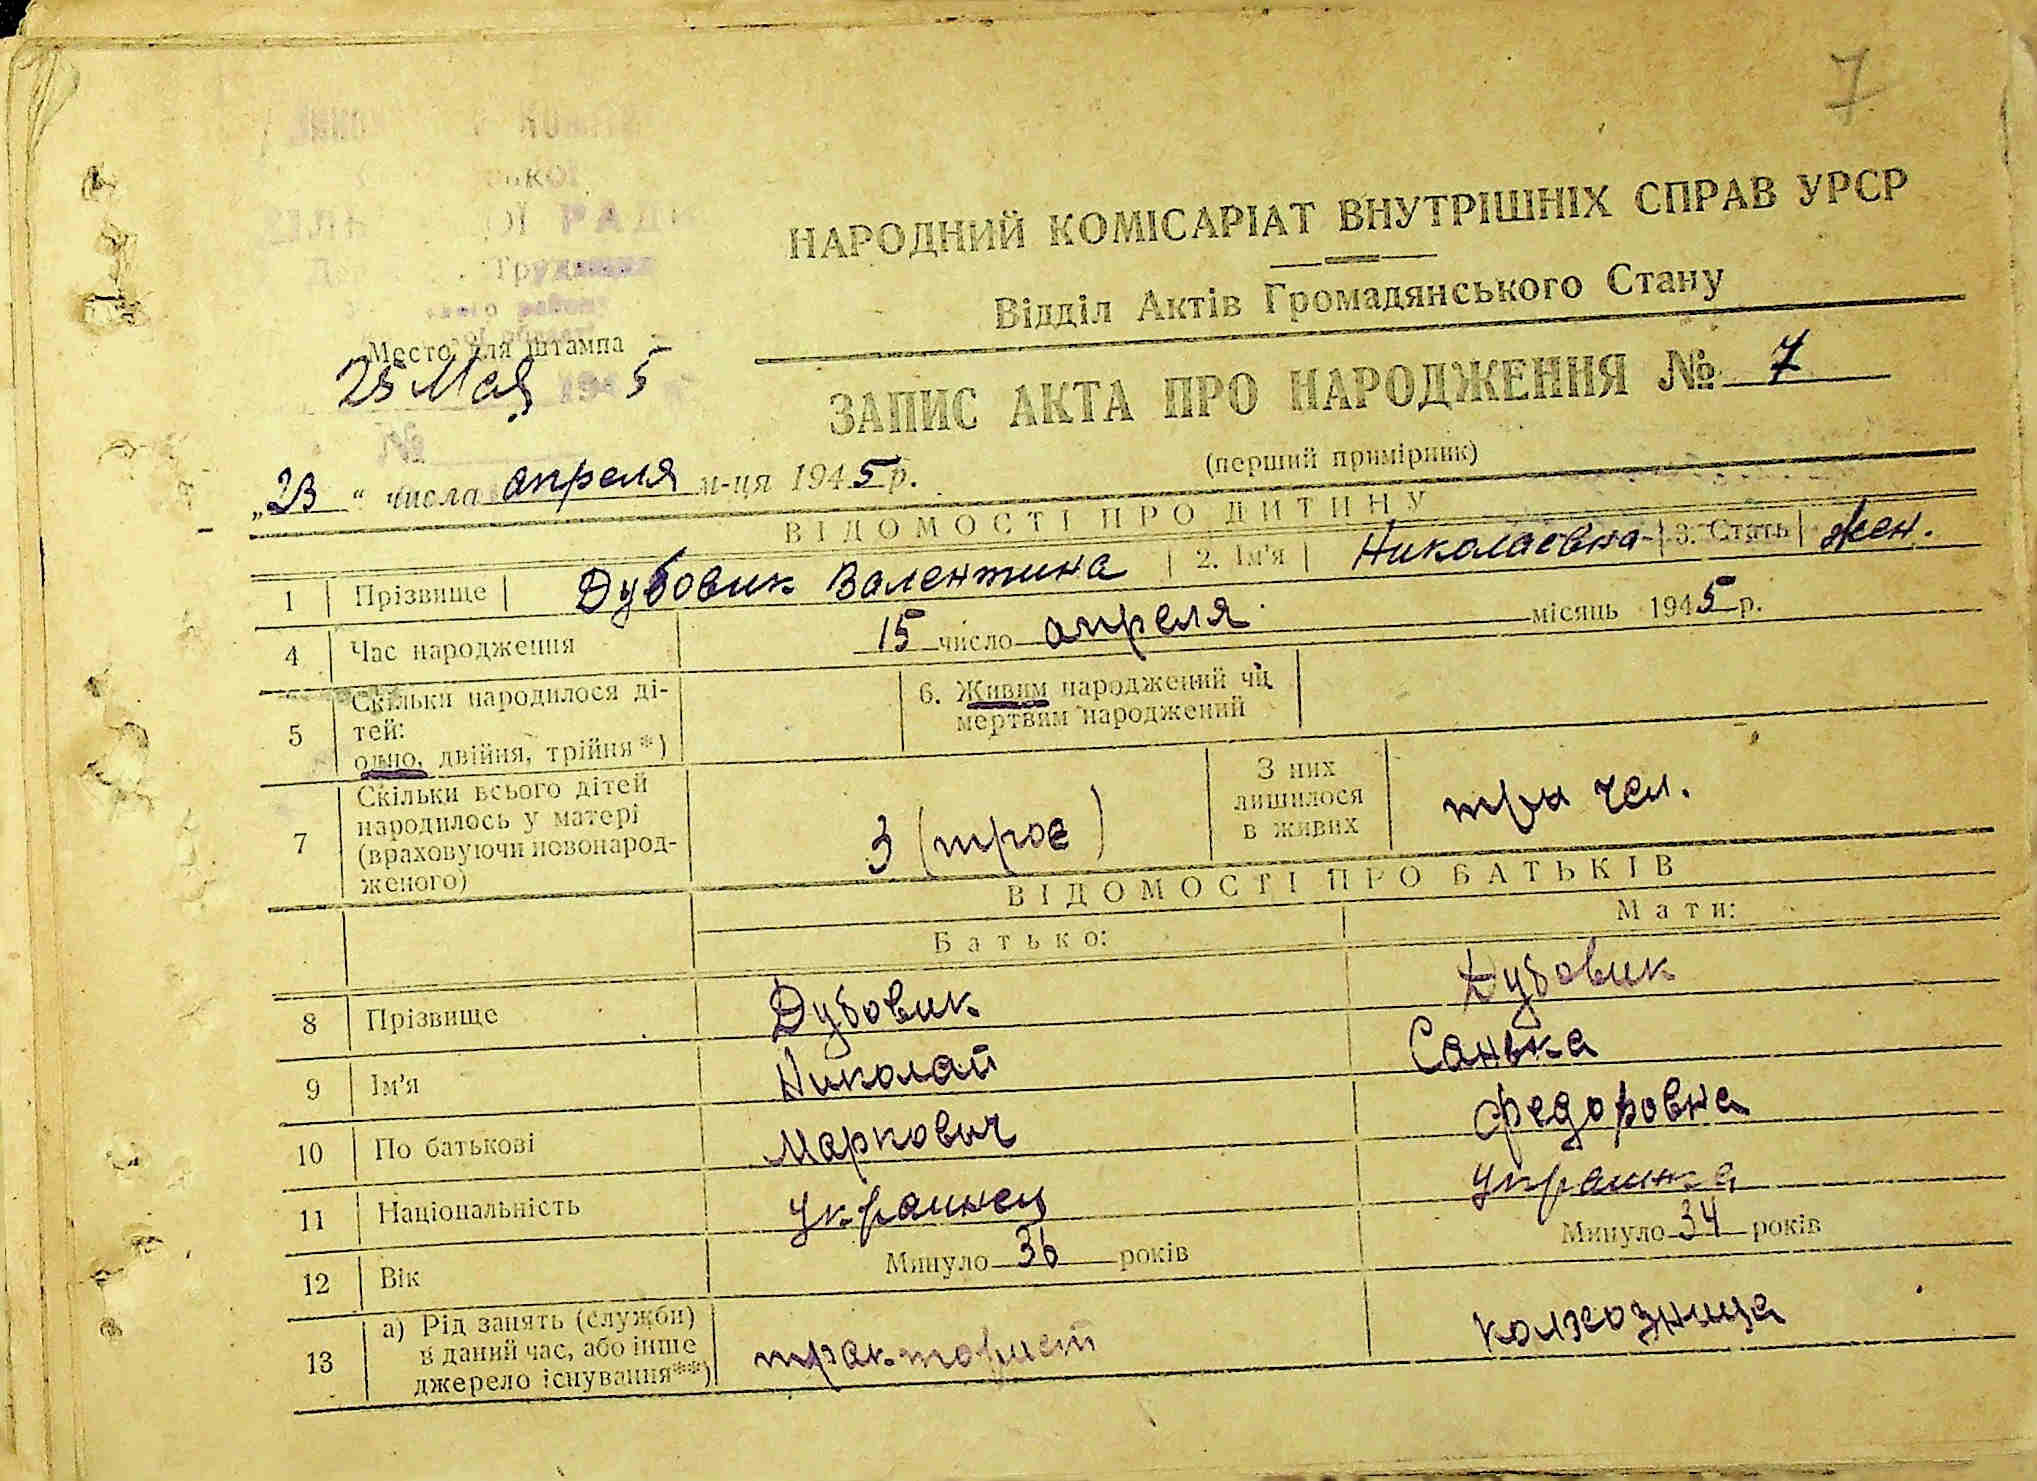 7
РАД
НАРОДНИЙ КОМІСАРІАТ ВНУТРІШНІХ СПРАВ УРСР
Відділ Актів Громадянського Стану
Место для штампа
25 Мая 194 5
ЗАПИС АКТА ПРО НАРОДЖЕННЯ № 7
(перший примірник)
„23" числа апреля м-ця 1945 р.
ВІДОМОСТІ ПРО ДИТИНУ
1 Прізвище Дубовик Валентина 2. Ім'я Николаевна 3. Стать жен.
4 Час народження 15 число апреля місяць 1945 р.
5 Скільки народилося ді-
тей:
одно, двійня, трійня*)
6. Живим народжений чи
мертвим народжений
7 Скільки всього дітей
народилось у матері
(враховуючи новонарод-
женого)
3 (трое)
З них
лишилося
в живих
три чел.
ВІДОМОСТІ ПРО БАТЬКІВ
Батько: Мати:
8 Прізвище Дубовик Дубовик
9 Ім'я Николай Санька
10 По батькові Маркович Федоровна
11 Національність Украинец Украинка
12 Вік Минуло 36 років Минуло 34 років
13 а) Рід занять (служби)
в даний час, або інше
джерело існування**)
тракторист колхозница